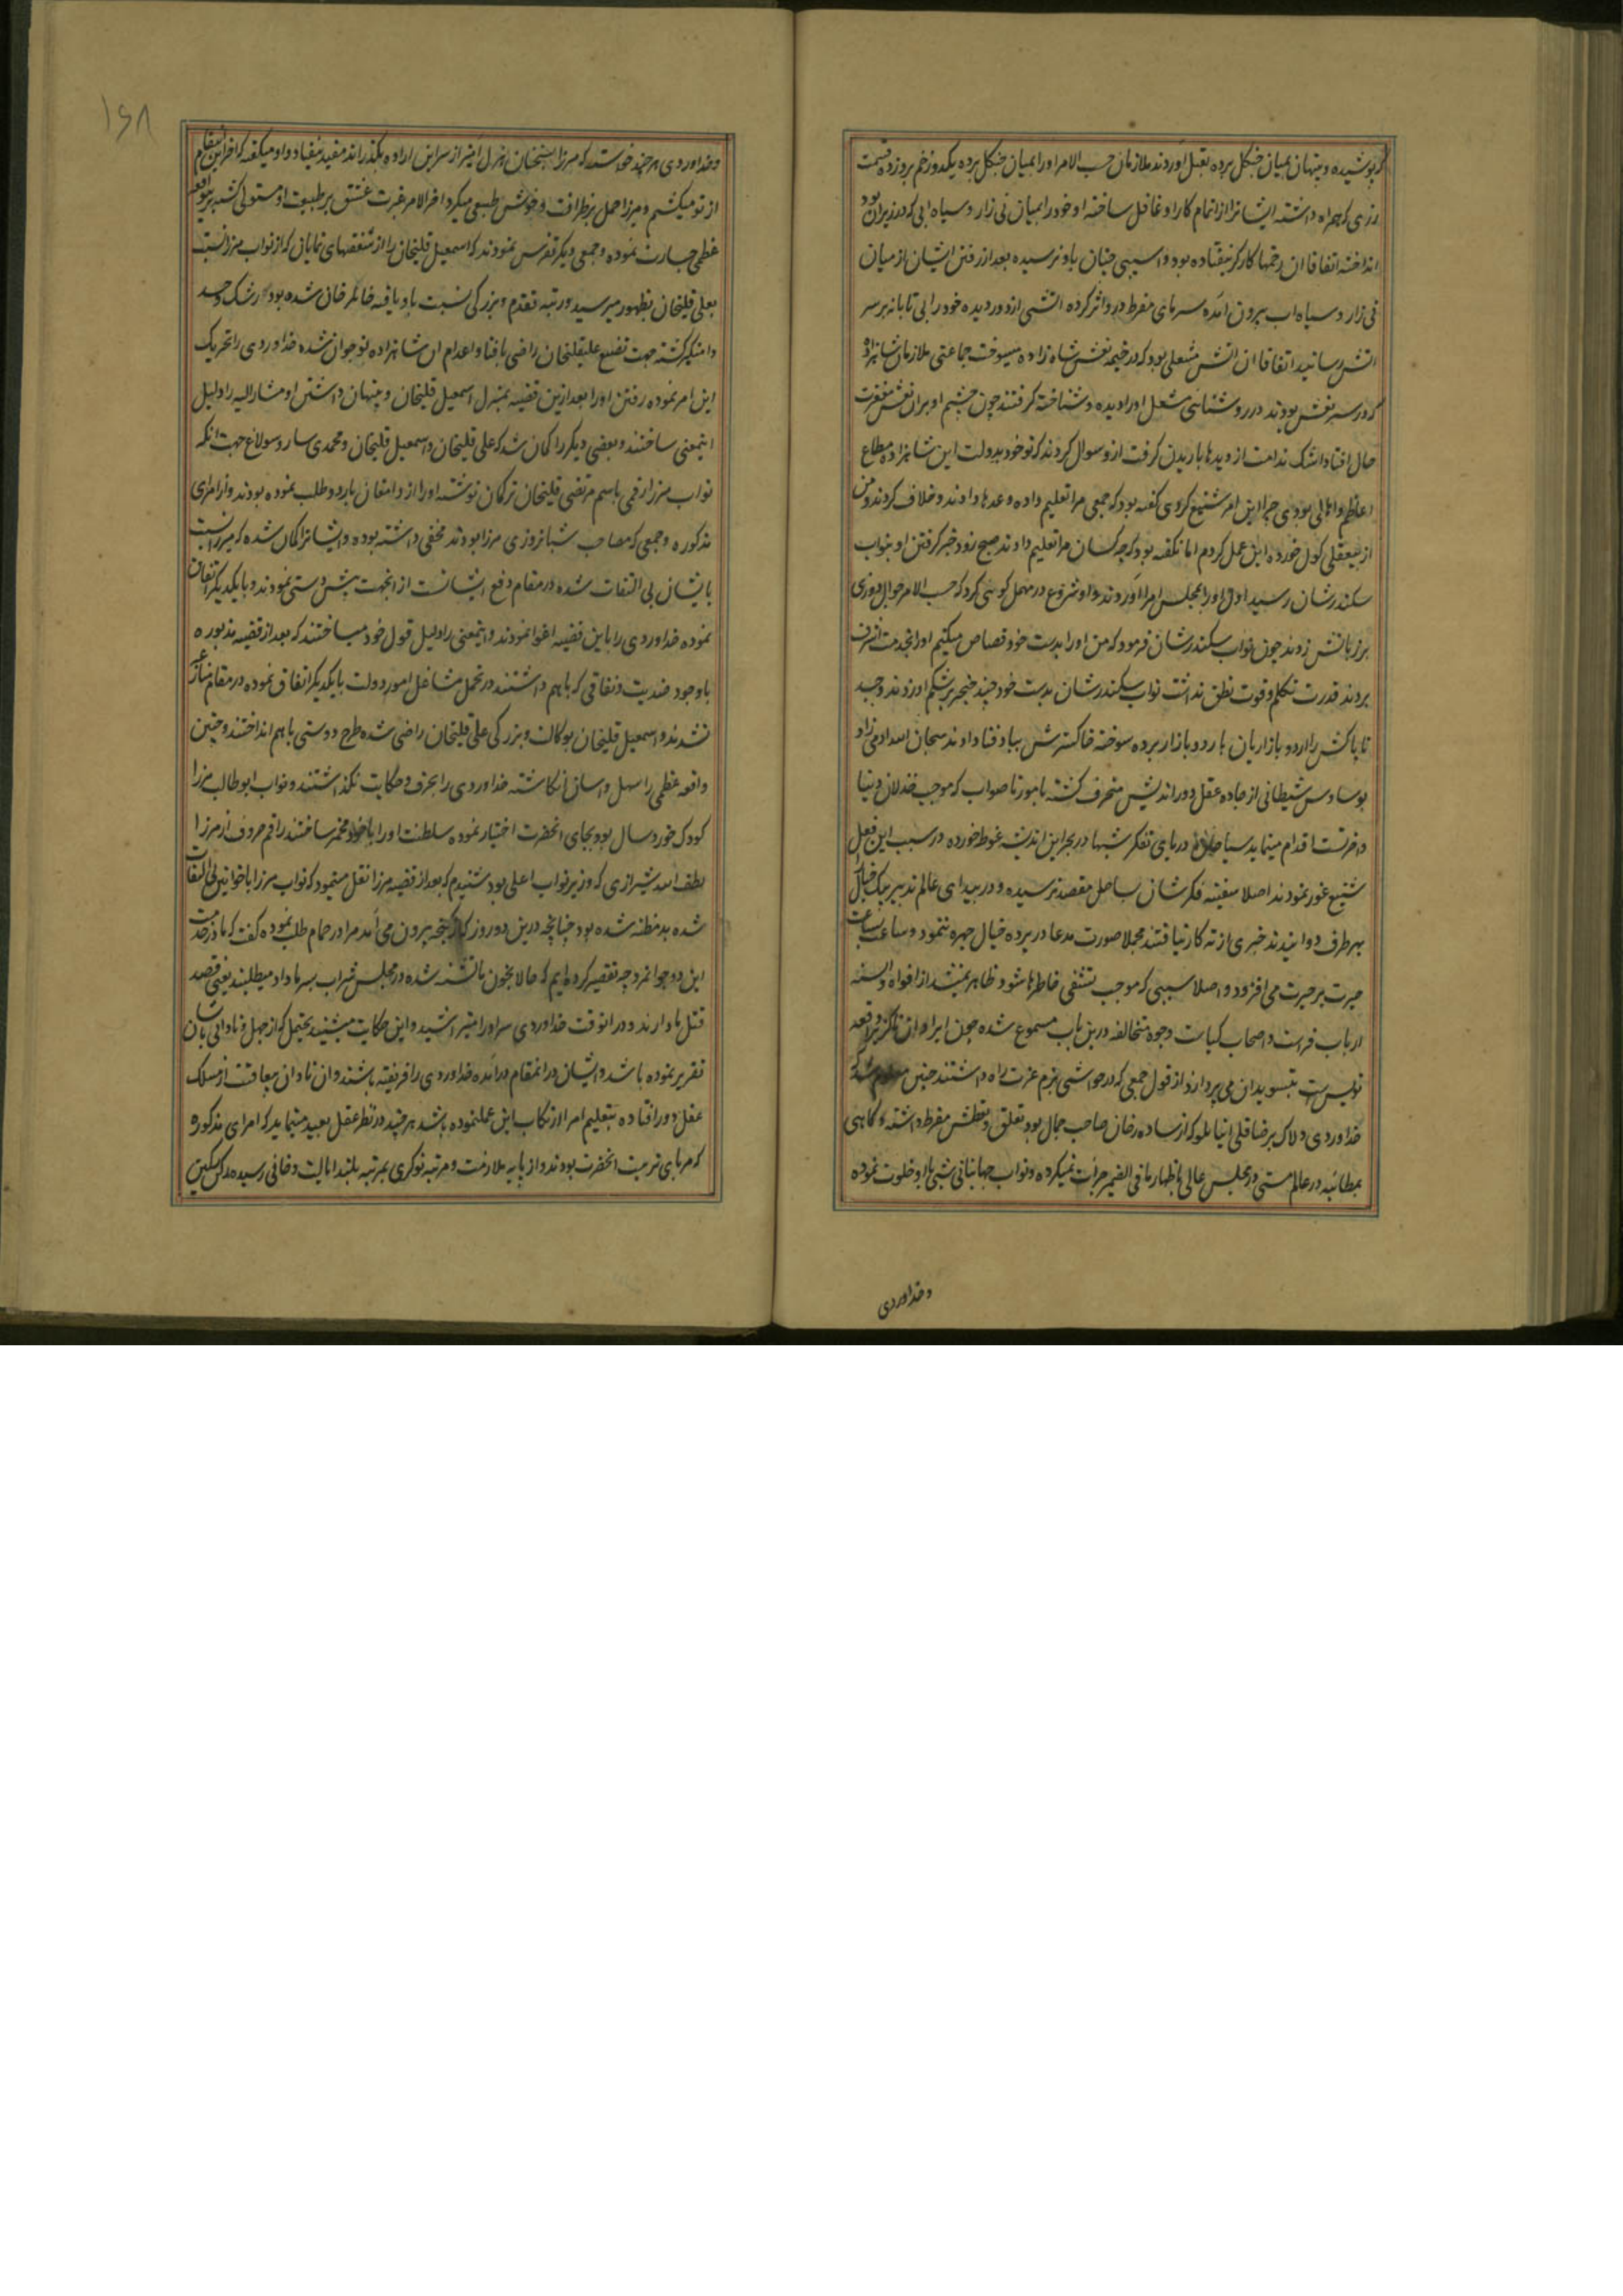 کرپوشیده و پنهان بمیان جنگل برده بقتل آوردند ملازمان حسب الامر او را بمیان جنگل برده یکدو زخم برو زده قسمت
زری که همراه داشته ایشانرا از اتمام کار او غافل ساخته او خود را بمیان نی زار و سیاه ابی که در زیر ان بود
انداخته اتفاقا ان زخمها کارگر نیفتاده بود و اسیبی چنان باو نرسیده بعد از رفتن ایشان از میان
نی زار و سیاه اب بیرون آمده سرمای مفرط درو اثر کرده اتشی از دور دیده خود را بی تابانه بر سر
اتش رسانید اتفاقا ان اتش مشعلی بود که در خیمه نعش شاه زاده میسوخت جماعتی ملازمان شاهزاده
که در سر نعش بودند در روشنایی مشعل او را دیده و شناخته گرفتند چون چشم او بران نعش مغفرت
حال افتاد اشک ندامت از دیدها باریدن گرفت ازو سوال کردند که تو خود بدولت این شاهزاده مطاع
اعاظم و اهالی بودی چرا این امر شنیع کردی گفته بود که جمعی مرا تعلیم داده وعدها دادند و خلاف کردند و من
از بیعقلی گول خورده این عمل کردم اما نگفته بود که چه کسان مرا تعلیم دادند صبح زود خبر گرفتن او بنواب
سکندرشان رسید اول او را بمجلس امرا آوردند و او شروع در مهمل گویی کرد که حسب الامر جوال دوزی
بر زبانش زدند چون نواب سکندرشان فرمود که من او را بدست خود قصاص میکنم او را بخدمت اشرف
بردند قدرت تکلم و قوت نطق نداشت نواب سکندرشان بدست خود چند خنجر بر شکم او زدند و جسد
ناپاکش را اردو بازاریان باردو بازار برده سوخته خاکسترش بباد فنا دادند سبحان الله ادمی زاد
بوساوس شیطانی از جاده عقل دوراندیش منحرف گشته بامور ناصواب که موجب خذلان دنیا
و اخرتست اقدام مینماید سیاحان دریای تفکر شبها در بحر این اندیشه غوطه خورده در سبب این فعل
شنیع غور نمودند اصلا سفینه فکرشان بساحل مقصد نرسیده و در بیدای عالم تدبیر پیک خیال
بهر طرف دوانیدند خبری از ته کار نیافتند مجملا صورت مدعا در پرده خیال چهره ننمود و ساعت بساعت
حیرت بر حیرت می افزود و اصلا سببی که موجب تشفی خاطرها شود ظاهر نمیشد از افواه و السنه
ارباب فراست و اصحاب کیاست وجوه متخالفه درین باب مسموع شده چون ایراد ان ناگزیر واقعه
نویس است بتسوید ان می پردازد از قول جمعی که در حواشی بزم عزت راه داشتند چنین معلوم شد که
خداوردی دلاک برضا قلی اینانلو که از ساده رخان صاحب جمال بود تعلق و تعطش مفرط داشته و گاهی
بمطائبه در عالم مستی در مجلس عالی باظهار ما فی الضمیر جرأت میکرده و نواب جهانبانی شبی با او خلوت نموده
وخداوردی
۱۶۸
و خداوردی هر چند خواست که میرزا بسخنان هزل امیز از سر این اراده بگذراند مفید نیفتاد و او میگفته که اخر این انتقام
از تو میکشم و میرزا حمل بر ظرافت و خوش طبعی میکرد اخر الامر غیرت عشق بر طبیعت او مستولی گشته برین واقعه
عظمی جسارت نموده و جمعی دیگر تفرس نمودند که اسمعیل قلیخان را از شفقتهای نمایان که از نواب میرزا نسبت
بعلی قلیخان بظهور میرسید و رتبه تقدم و بزرگی نسبت باو یافته خانلر خان شده بود رشک و حسد
دامنگیر گشته جهت تضییع علیقلیخان راضی بافنا و اعدام ان شاهزاده نوجوان شده خداوردی را تحریک
این امر نموده رفتن او را بعد ازین قضیه بمنزل اسمعیل قلیخان و پنهان داشتن او مشار الیه را دلیل
اینمعنی ساختند و بعضی دیگر را گمان شد که علی قلیخان و اسمعیل قلیخان و محمدی ساروسولاغ جهت انکه
نواب میرزا رقمی باسم مرتضی قلیخان ترکمان نوشته او را از دامغان باردو طلب نموده بودند و از امرای
مذکوره و جمعی که مصاحب شبانروزی میرزا بودند مخفی داشته بوده و ایشانرا گمان شده که میرزا نسبت
بایشان بی التفات شده در مقام دفع ایشانست از انجهت پیش دستی نمودند و با یکدیگر اتفاق
نموده خداوردی را باین قضیه اغوا نمودند و اینمعنی را دلیل قول خود میساختند که بعد از قضیه مذبوره
با وجود ضدیت و نفاقی که با هم داشتند در تحمل مشاغل امور دولت با یکدیگر اتفاق نموده در مقام منازعه
نشدند و اسمعیل قلیخان بوکالت و بزرگی علی قلیخان راضی شده طرح دوستی با هم انداختند و چنین
واقعه عظمی را سهل و اسان انگاشته خداوردی را بحرف و حکایت نگذاشتند و نواب ابو طالب میرزا
کودک خورد سال بود بجای انحضرت اختیار نموده سلطنت او را با خود مخمر ساختند راقم حروف از میرزا
لطف الله شیرازی که وزیر نواب اعلی بود شنیدم که بعد از قضیه میرزا نقل مینمود که نواب میرزا با خوانین بی التفات
شده بدمظنه شده بود چنانچه درین دو روز که از گنجه بیرون می آمد مرا در حمام طلب نموده گفت که ما در خدمت
این دو جوانمرد چه تقصیر کرده ایم که حالا بخون ما تشنه شده در مجلس شراب سر ما داد میطلبند یعنی قصد
قتل ما دارند و در انوقت خداوردی سر او را میتراشید و این حکایت میشنید یحتمل که از جهل و نادانی بایشان
تقریر نموده باشد و ایشان در انمقام درآمده خداوردی را فریفته باشند و ان نادان بیعاقبت از مسلک
عقل دور افتاده بتعلیم امرا ارتکاب این عمل نموده باشد هر چند در نظر عقل بعید مینماید که امرای مذکوره
که مربای تربیت انحضرت بودند و از پایه ملازمت و مرتبه نوکری بمرتبه بلند ایالت و خانی رسیده